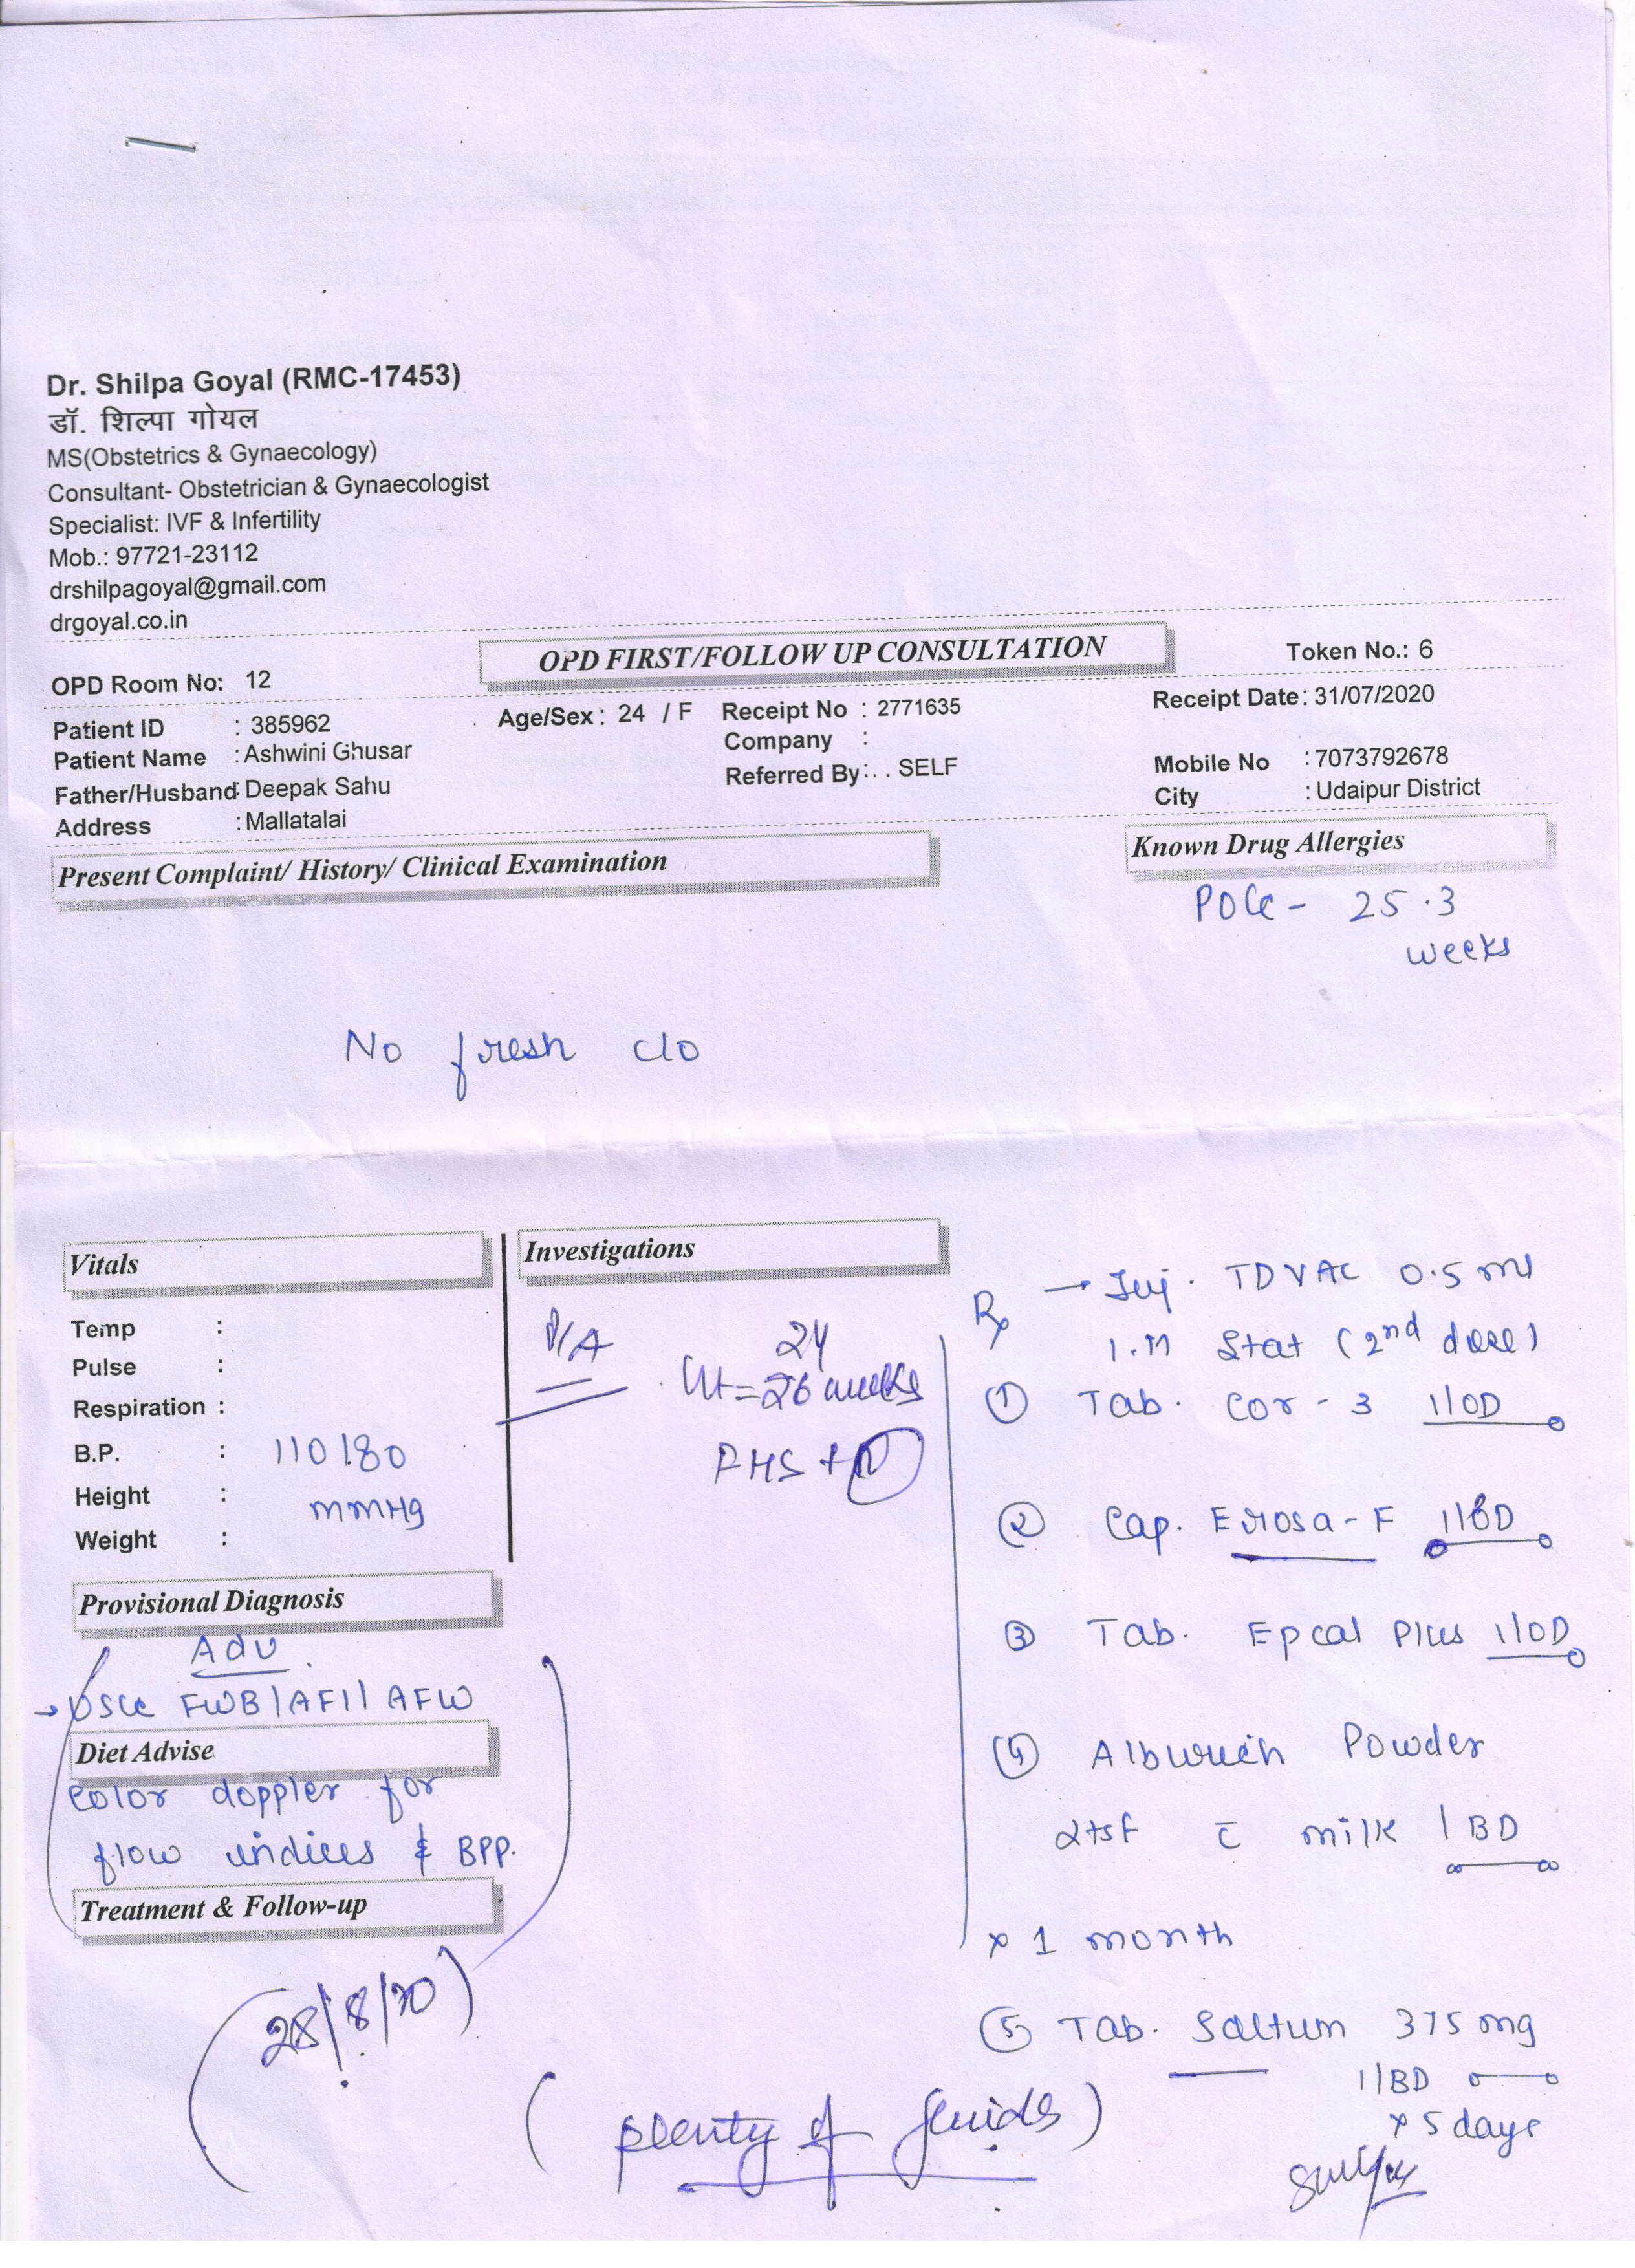 Dr. Shilpa Goyal (RMC-17453)
डॉ. शिल्पा गोयल
MS(Obstetrics & Gynaecology)
Consultant- Obstetrician & Gynaecologist
Specialist: IVF & Infertility
Mob.: 97721-23112
drshilpagoyal@gmail.com
drgoyal.co.in
OPD FIRST/FOLLOW UP CONSULTATION
Token No.: 6
OPD Room No: 12
Patient ID : 385962 Age/Sex : 24 / F Receipt No : 2771635 Receipt Date: 31/07/2020
Patient Name : Ashwini Ghusar Company :
Father/Husband: Deepak Sahu Referred By : . . SELF Mobile No : 7073792678
Address : Mallatalai City : Udaipur District
Present Complaint/ History/ Clinical Examination
Known Drug Allergies
POG - 25.3
weeks
No fresh c/o
Vitals
Temp :
Pulse :
Respiration :
B.P. : 110/80
mmHg
Height :
Weight :
Investigations
P/A
24
Ut = 26 weeks
FHS +
Rx → Inj. TDVAC 0.5 ml
I.M Stat (2nd dose)
① Tab. Cor-3 1/OD
② Cap. Erosa-F 1/BD
③ Tab. Epcal Plus 1/OD
④ Powder
2tsf c̄ milk / BD
x 1 month
⑤ Tab. Saltum 375 mg
1/BD
x 5 days
Provisional Diagnosis
Adv
→ USG FWB/AFI/AFW
Diet Advise
Color doppler for
flow indices & BPP.
Treatment & Follow-up
(28/8/20)
(plenty of fluids)